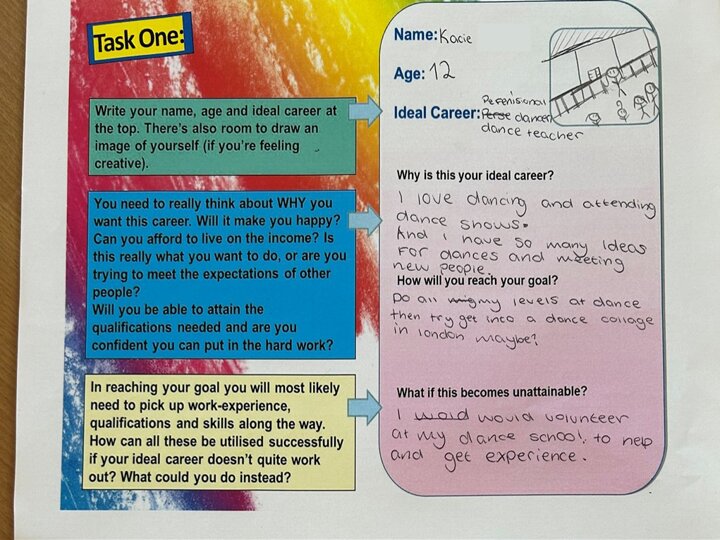 Task One:
Name: Kacie
Age: 12
Ideal Career: Pefenisional
Perse dancer
dance teacher
Write your name, age and ideal career at
the top. There's also room to draw an
image of yourself (if you're feeling
creative).
Why is this your ideal career?
I love dancing and attending
dance shows.
And I have so many Ideas
For dances and meeting
new people.
You need to really think about WHY you
want this career. Will it make you happy?
Can you afford to live on the income? Is
this really what you want to do, or are you
trying to meet the expectations of other
people?
Will you be able to attain the
qualifications needed and are you
confident you can put in the hard work?
How will you reach your goal?
Do all my levels at dance
then try get into a dance collage
in london maybe?
In reaching your goal you will most likely
need to pick up work-experience,
qualifications and skills along the way.
How can all these be utilised successfully
if your ideal career doesn't quite work
out? What could you do instead?
What if this becomes unattainable?
I woid would volunteer
at my dance school. to help
and get experience.